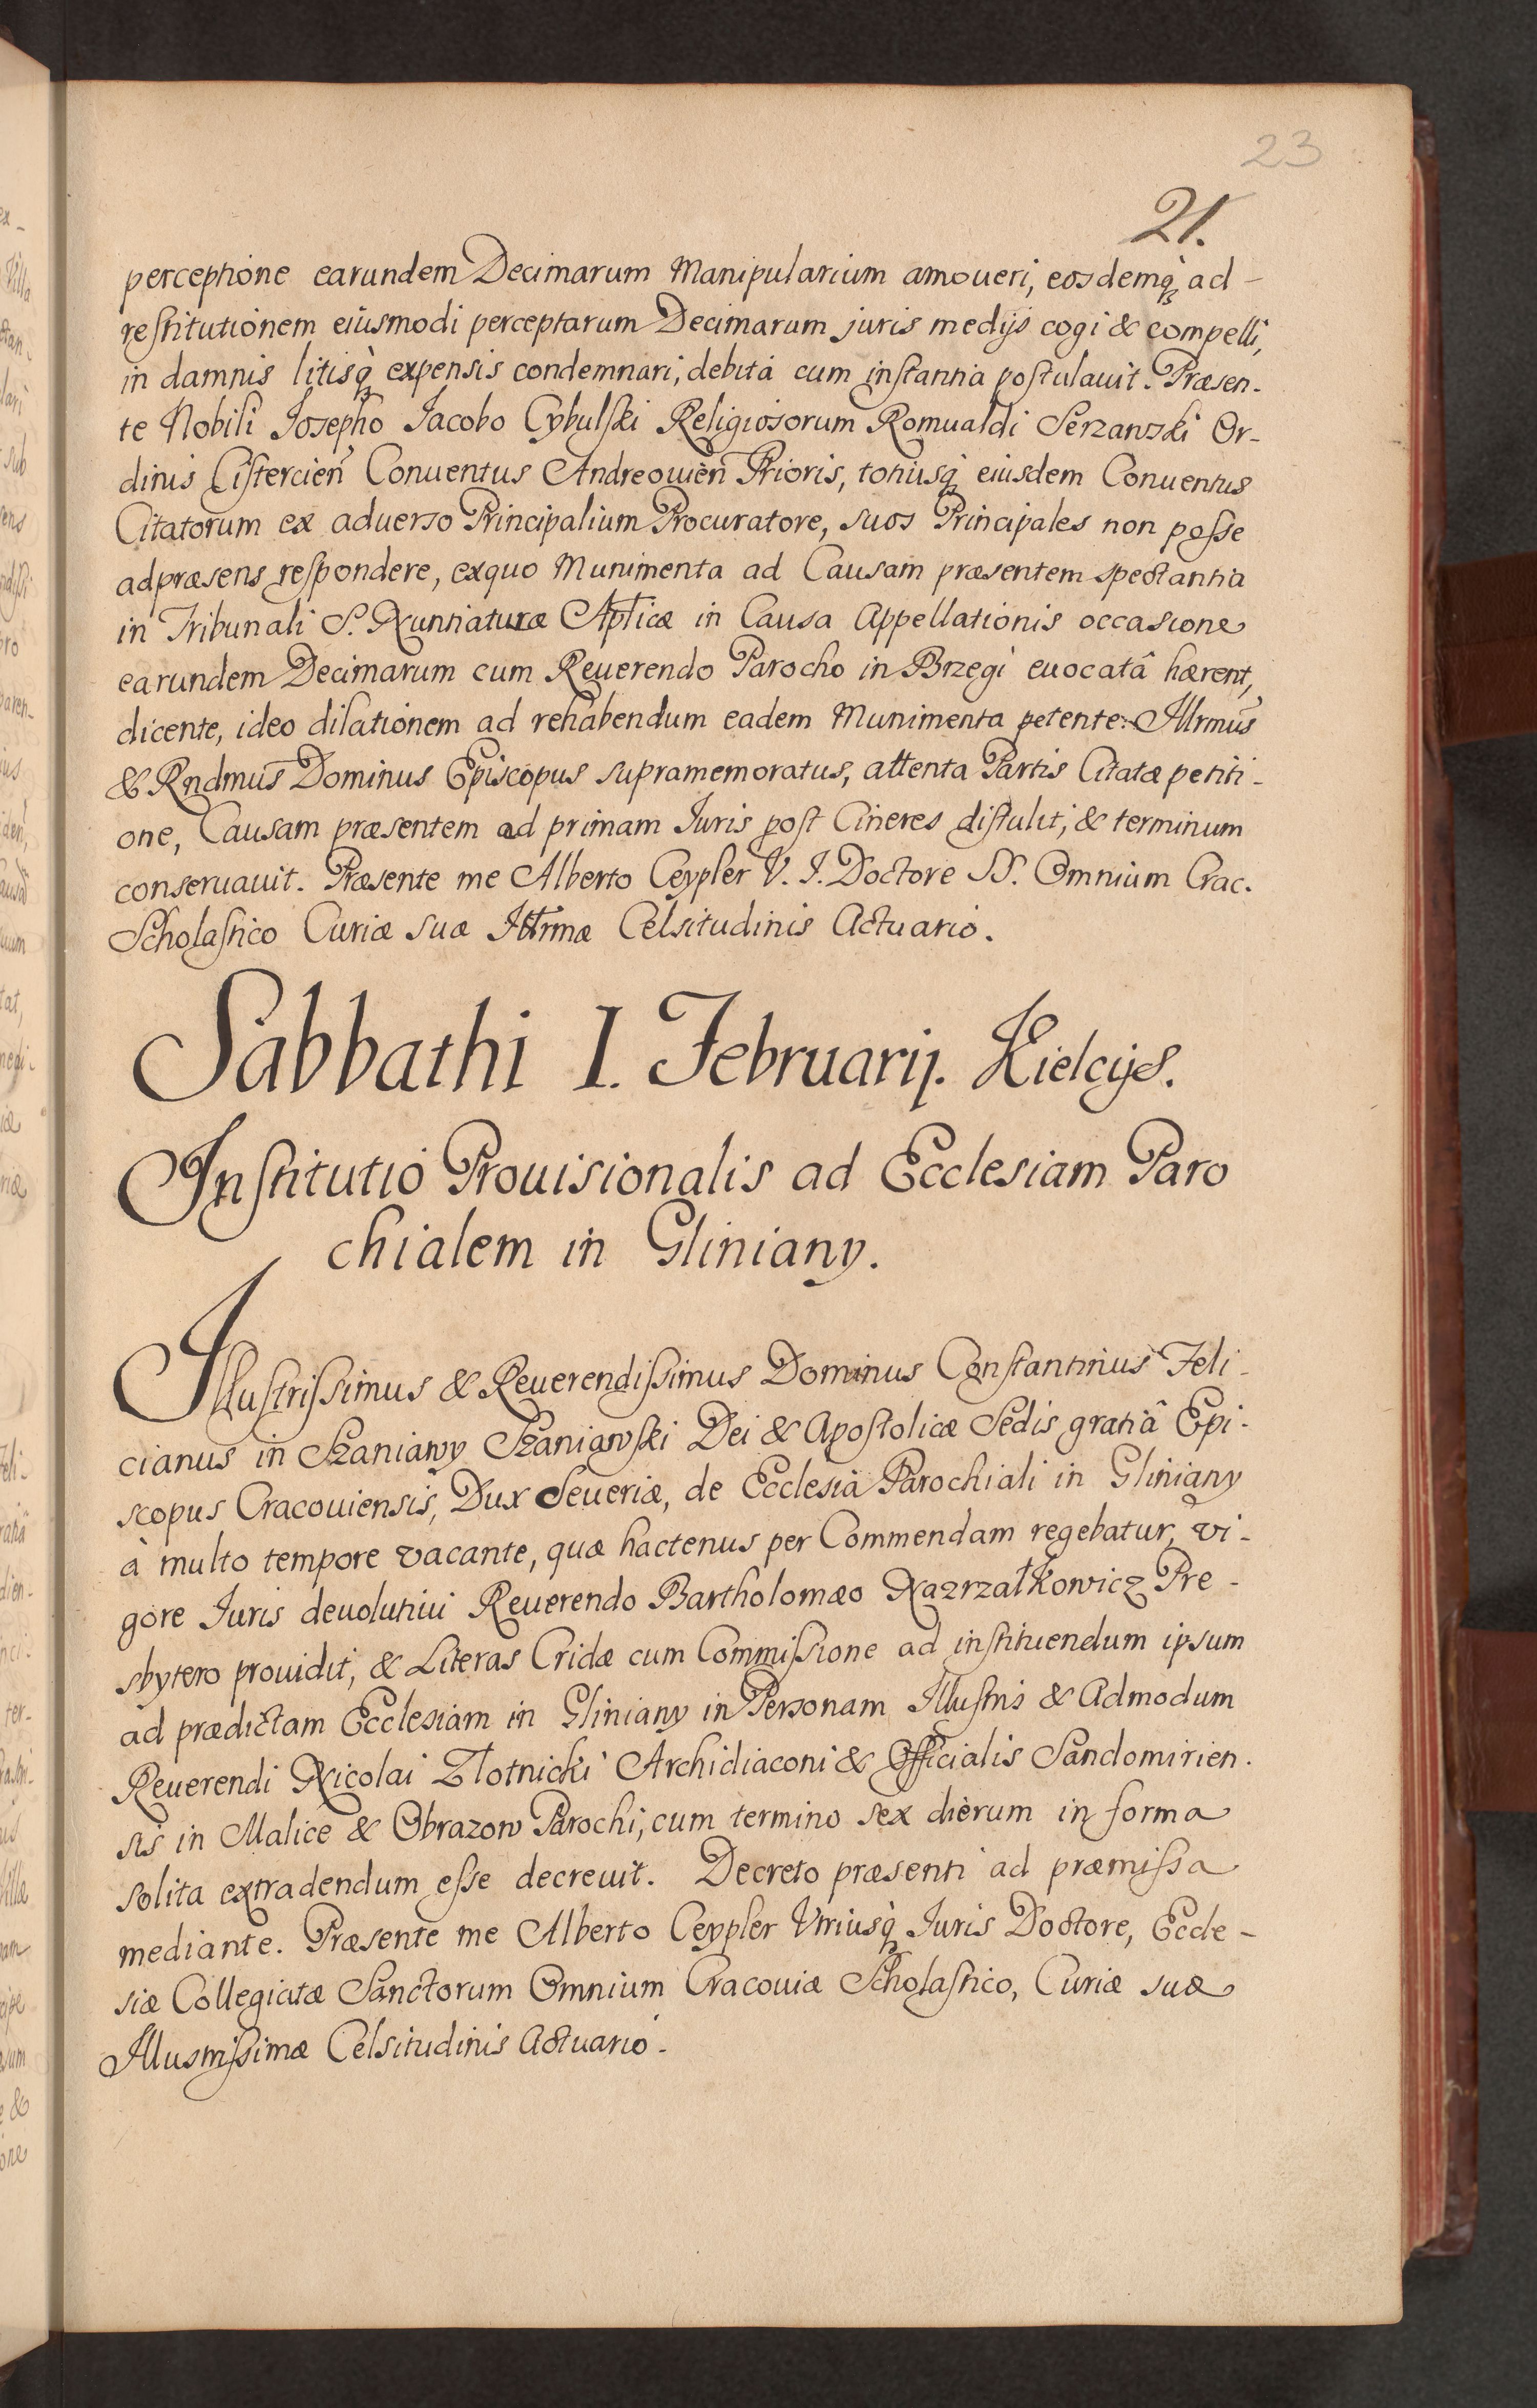 23
21.
perceptione earundem Decimarum Manipularium amoueri, eosdemq̀ ad-
restitutionem eiusmodi perceptarum Decimarum juris medijs cogi & compelli,
in damnis litisq̀ expensis condemnari, debitá cum instantia postulauit. Præsen-
te Nobili Josepho Jacobo Cybulski Religiosorum Romualdi Serzawski Or-
dinis Cisterciēn Conuentus Andreouiēn Prioris, totiusq́ eiusdem Conuentus
Citatorum ex aduerso Principalium Procuratore, suos Principales non posse
adpræsens respondere, exquo Munimenta ad Causam præsentem spectantia
in Tribunali S. Nuntiaturæ Aplicæ in Causa Appellationis occasione
earundem Decimarum cum Reuerendo Parocho in Brzegi euocatâ hærent,
dicente, ideo dilationem ad rehabendum eadem Munimenta petente. Illrmus
& Rndmus Dominus Episcopus supramemoratus, attenta Partis Citatæ petiti-
one, Causam præsentem ad primam Juris post Cineres distulit, & terminum
conseruauit. Præsente me Alberto Ceypler V. J. Doctore SS. Omnium Crac.
Scholastico Curiæ suæ Illrmæ Celsitudinis Actuario.
Sabbathi I. Februarij. Kielcijs.
Institutio Prouisionalis ad Ecclesiam Paro
chialem in Gliniany.
Illustrissimus & Reuerendissimus Dominus Constantinus Feli-
cianus in Szaniawy Szaniawski Dei & Apostolicæ Sedis gratiâ Epi-
scopus Cracouiensis, Dux Seueriæ, de Ecclesia Parochiali in Gliniany
à multo tempore vacante, quæ hactenus per Commendam regebatur, vi-
gore Juris deuolutiui Reuerendo Bartholomæo Nazrzałkowicz Pre-
sbytero prouidit, & Literas Cridæ cum Commissione ad instituendum ipsum
ad prædictam Ecclesiam in Gliniany in Personam Illustris & Admodum
Reuerendi Nicolai Złotnicki Archidiaconi & Officialis Sandomirien-
sis in Malice & Obrazow Parochi, cum termino sex dierum in forma
solita extradendum esse decreuit. Decreto præsenti ad præmissa
mediante. Præsente me Alberto Ceypler Vtriusq̀ Juris Doctore, Eccle-
siæ Collegiatæ Sanctorum Omnium Cracouiæ Scholastico, Curiæ suæ
Illustrissimæ Celsitudinis Actuario.